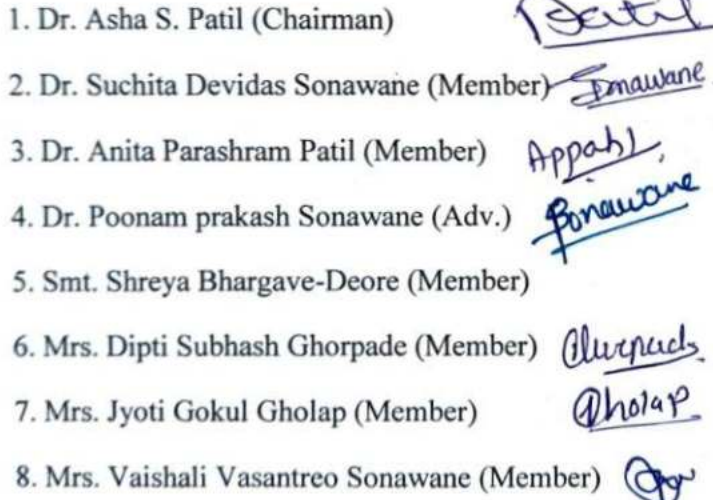 1. Dr. Asha S. Patil (Chairman) Patil
2. Dr. Suchita Devidas Sonawane (Member) Sonawane
3. Dr. Anita Parashram Patil (Member) Appatil
4. Dr. Poonam prakash Sonawane (Adv.) Psonawane
5. Smt. Shreya Bhargave-Deore (Member)
6. Mrs. Dipti Subhash Ghorpade (Member)
7. Mrs. Jyoti Gokul Gholap (Member) Gholap
8. Mrs. Vaishali Vasantreo Sonawane (Member)